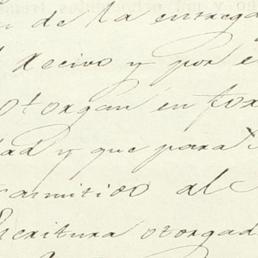 de la entrega
recivo y por e
otorgan en for
dad y que para
ramitio al
scritura otorgad